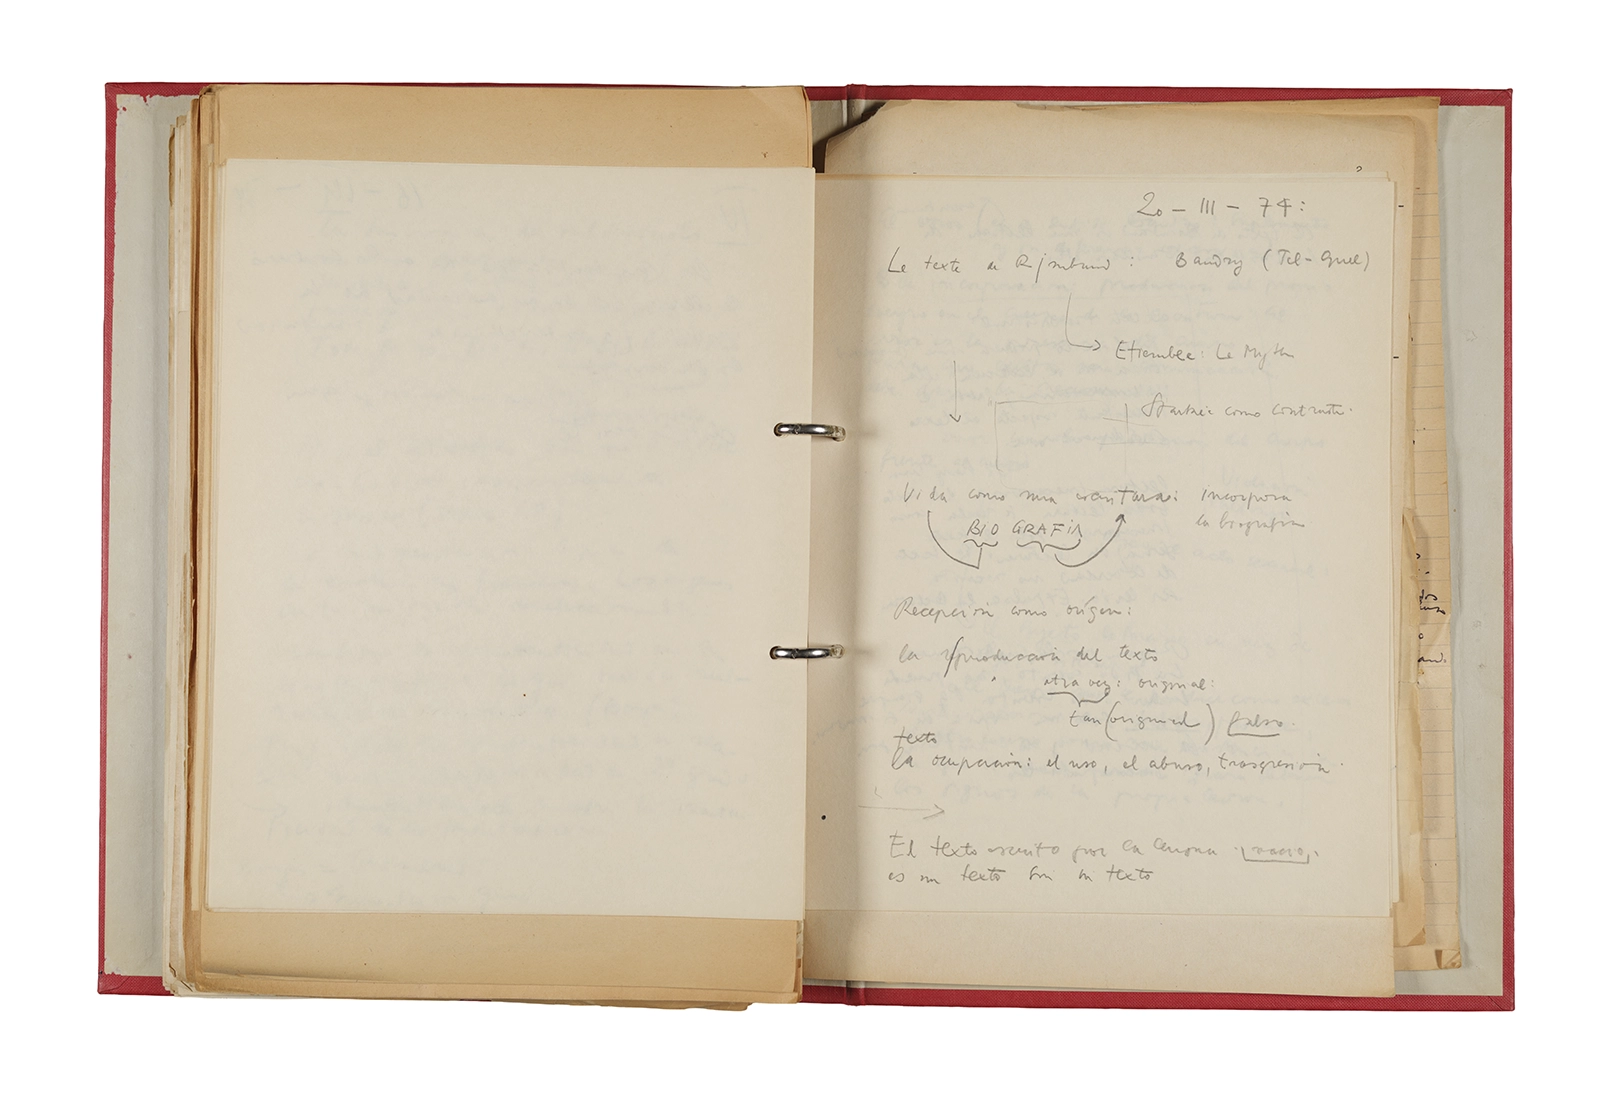 20 - III - 74:
Le texte de Rimbaud : Baudry (Tel-Quel)
Etiemble: Le Mythe
Starkie como contraste.
Vida como una escritura: incorpora
la biografia
BIO GRAFIA
Recepción como orígen:
la reproducción del texto
otra vez: original:
tan (original) falso.
texto
la ocupación: el uso, el abuso, trasgresión.
El texto escrito por la lengua
es un texto sin texto